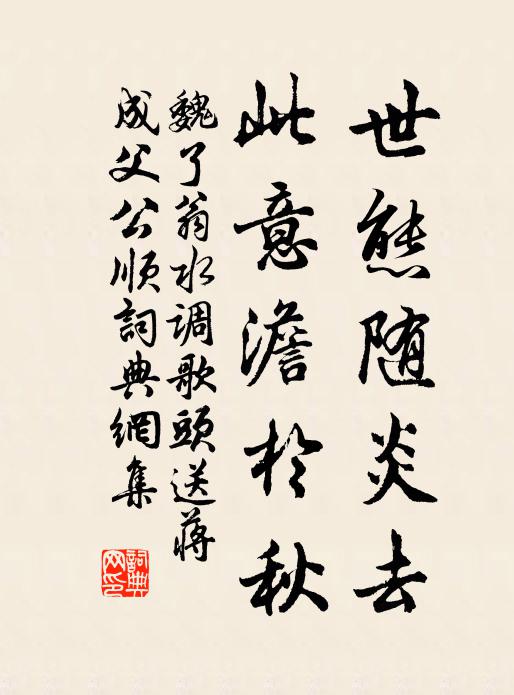 世態随炎去
此意澹於秋
魏了翁水调歌頭送蔣
成父公順詞典網集
詞典网印